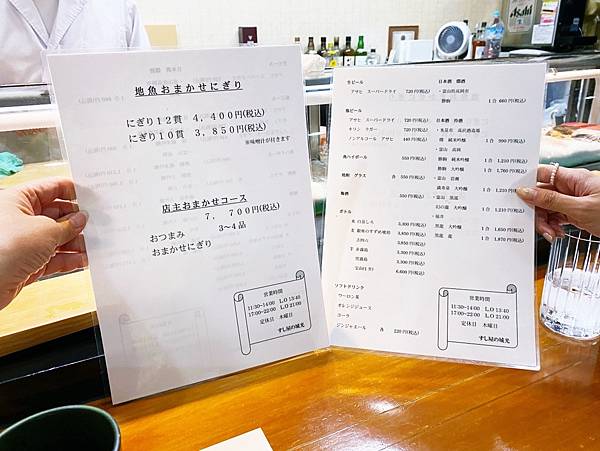 地魚おまかせにぎり
にぎり12貫 4,400円(税込)
にぎり10貫 3,850円(税込)
※味噌汁が付きます
店主おまかせコース
7,700円(税込)
おつまみ 3～4品
おまかせにぎり
営業時間
11:30~14:00 LO 13:40
17:00~22:00 LO 21:00
定休日 木曜日
すし屋の城光
生ビール
アサヒ スーパードライ 720円(税込)
瓶ビール
アサヒ スーパードライ 720円(税込)
キリン ラガー 720円(税込)
ノンアルコール アサヒ 440円(税込)
角ハイボール 550円(税込)
焼酎 グラス 各 550円(税込)
梅酒 550円(税込)
ボトル
3,300円(税込)
3,850円(税込)
3,850円(税込)
3,300円(税込)
3,300円(税込)
6,600円(税込)
ソフトドリンク
ウーロン茶
オレンジジュース
コーラ
ジンジャエール 各 220円(税込)
日本酒 燗酒
・富山県高岡市
勝駒 1合 660円(税込)
日本酒 冷酒
純米吟醸 1合 990円(税込)
・富山 高岡
勝駒 純米吟醸 1合 1,210円(税込)
勝駒 大吟醸 1合 1,760円(税込)
・富山
大吟醸 1合 1,210円(税込)
・富山 黒部
幻の瀧 大吟醸 1合 1,210円(税込)
・福井
黒龍 大吟醸 1合 1,650円(税込)
黒龍 龍 1合 1,870円(税込)
営業時間
11:30~14:00 LO 13:40
17:00~22:00 LO 21:00
定休日 木曜日
すし屋の城光
Asahi